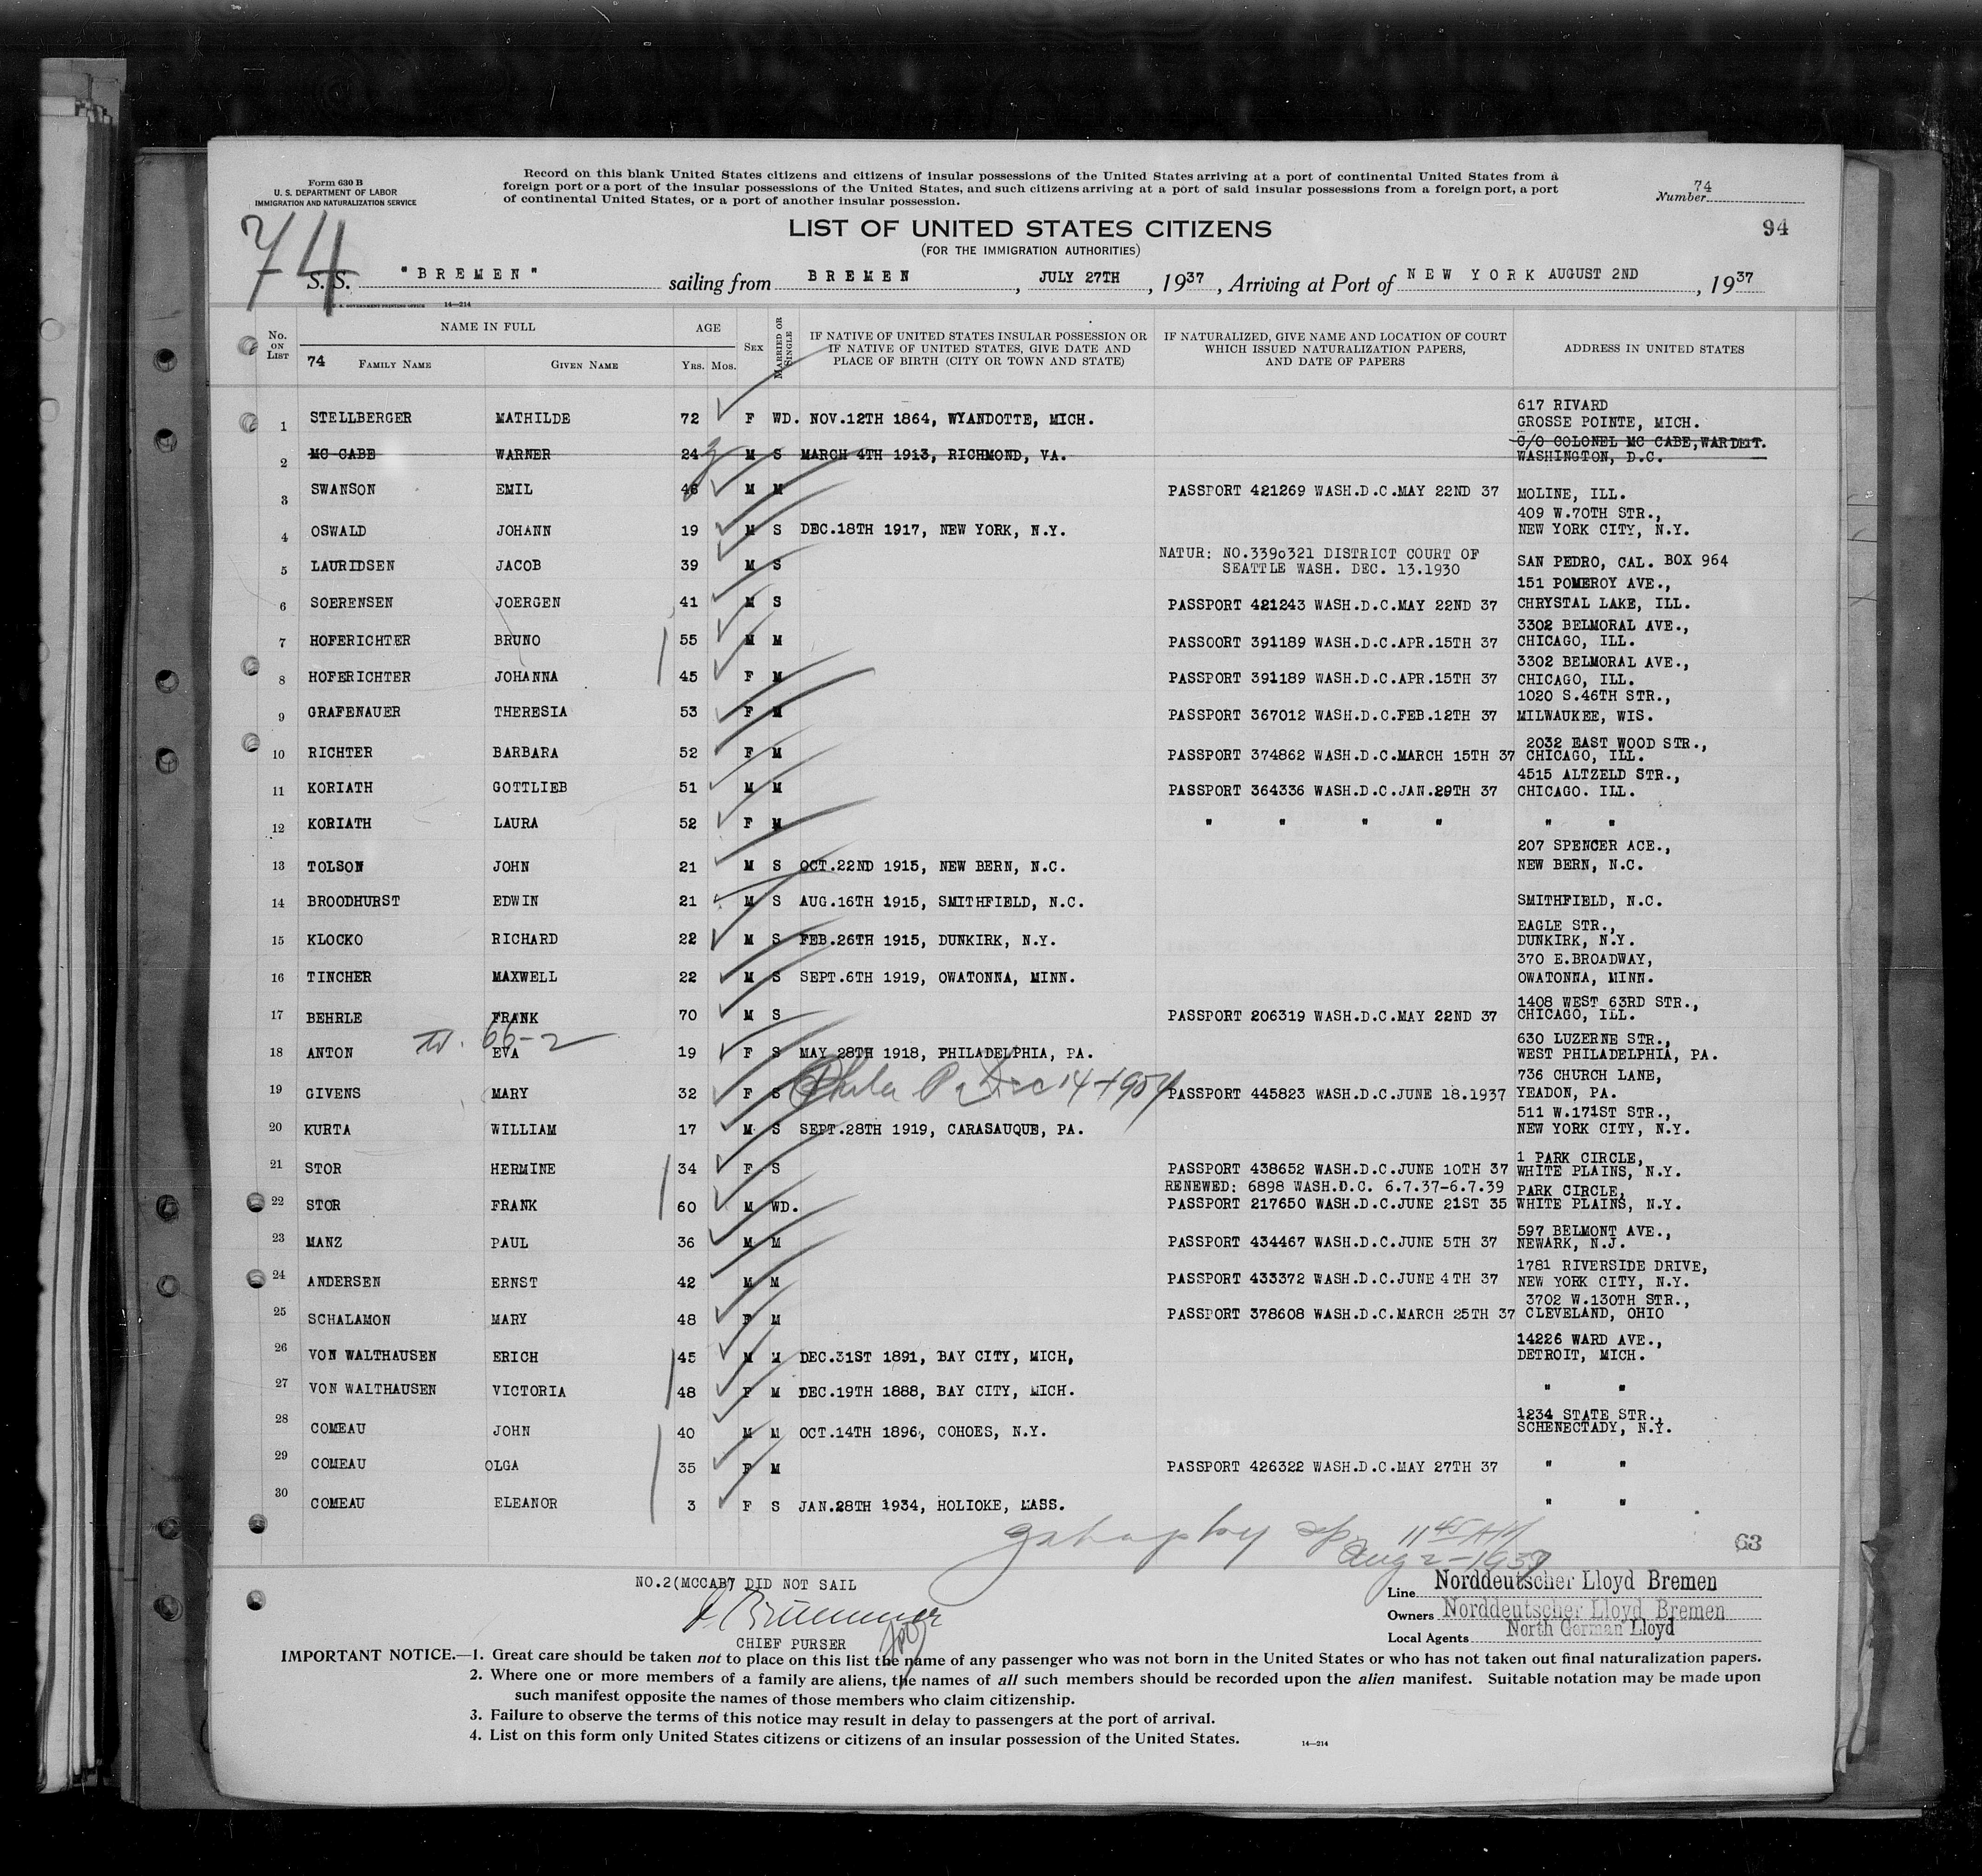 Form 630 B
U. S. DEPARTMENT OF LABOR
IMMIGRATION AND NATURALIZATION SERVICE
Record on this blank United States citizens and citizens of insular possessions of the United States arriving at a port of continental United States from a
foreign port or a port of the insular possessions of the United States, and such citizens arriving at a port of said insular possessions from a foreign port, a port
of continental United States, or a port of another insular possession.
Number 74
94
74
LIST OF UNITED STATES CITIZENS
(FOR THE IMMIGRATION AUTHORITIES)
S. S. "BREMEN" sailing from BREMEN, JULY 27TH, 1937, Arriving at Port of NEW YORK AUGUST 2ND, 1937
U. S. GOVERNMENT PRINTING OFFICE 14—214
No. ON LIST
NAME IN FULL
74 FAMILY NAME GIVEN NAME
AGE
YRS. MOS.
SEX
MARRIED OR SINGLE
IF NATIVE OF UNITED STATES INSULAR POSSESSION OR
IF NATIVE OF UNITED STATES, GIVE DATE AND
PLACE OF BIRTH (CITY OR TOWN AND STATE)
IF NATURALIZED, GIVE NAME AND LOCATION OF COURT
WHICH ISSUED NATURALIZATION PAPERS,
AND DATE OF PAPERS
ADDRESS IN UNITED STATES
1 STELLBERGER MATHILDE 72 F WD. NOV.12TH 1864, WYANDOTTE, MICH. 617 RIVARD
GROSSE POINTE, MICH.
2 MC CABE WARNER 24 M S MARCH 4TH 1913, RICHMOND, VA. C/O COLONEL MC CABE,WARDEPT.
WASHINGTON, D.C.
3 SWANSON EMIL 48 M M PASSPORT 421269 WASH.D.C.MAY 22ND 37 MOLINE, ILL.
4 OSWALD JOHANN 19 M S DEC.18TH 1917, NEW YORK, N.Y. 409 W.70TH STR.,
NEW YORK CITY, N.Y.
5 LAURIDSEN JACOB 39 M S NATUR: NO.3390321 DISTRICT COURT OF
SEATTLE WASH. DEC. 13.1930 SAN PEDRO, CAL. BOX 964
6 SOERENSEN JOERGEN 41 M S PASSPORT 421243 WASH.D.C.MAY 22ND 37 151 POMEROY AVE.,
CHRYSTAL LAKE, ILL.
7 HOFERICHTER BRUNO 55 M M PASSOORT 391189 WASH.D.C.APR.15TH 37 3302 BELMORAL AVE.,
CHICAGO, ILL.
8 HOFERICHTER JOHANNA 45 F M PASSPORT 391189 WASH.D.C.APR.15TH 37 3302 BELMORAL AVE.,
CHICAGO, ILL.
9 GRAFENAUER THERESIA 53 F M PASSPORT 367012 WASH.D.C.FEB.12TH 37 1020 S.46TH STR.,
MILWAUKEE, WIS.
10 RICHTER BARBARA 52 F M PASSPORT 374862 WASH.D.C.MARCH 15TH 37 2032 EAST WOOD STR.,
CHICAGO, ILL.
11 KORIATH GOTTLIEB 51 M M PASSPORT 364336 WASH.D.C.JAN.29TH 37 4515 ALTZELD STR.,
CHICAGO. ILL.
12 KORIATH LAURA 52 F M " " " " " "
13 TOLSON JOHN 21 M S OCT.22ND 1915, NEW BERN, N.C. 207 SPENCER ACE.,
NEW BERN, N.C.
14 BROODHURST EDWIN 21 M S AUG.16TH 1915, SMITHFIELD, N.C. SMITHFIELD, N.C.
15 KLOCKO RICHARD 22 M S FEB.26TH 1915, DUNKIRK, N.Y. EAGLE STR.,
DUNKIRK, N.Y.
16 TINCHER MAXWELL 22 M S SEPT.6TH 1919, OWATONNA, MINN. 370 E.BROADWAY,
OWATONNA, MINN.
17 BEHRLE FRANK 70 M S PASSPORT 206319 WASH.D.C.MAY 22ND 37 1408 WEST 63RD STR.,
CHICAGO, ILL.
66-2
18 ANTON EVA 19 F S MAY 28TH 1918, PHILADELPHIA, PA. 630 LUZERNE STR.,
WEST PHILADELPHIA, PA.
19 GIVENS MARY 32 F S Phila Pa Dec 14-1904 PASSPORT 445823 WASH.D.C.JUNE 18.1937 736 CHURCH LANE,
YEADON, PA.
20 KURTA WILLIAM 17 M S SEPT.28TH 1919, CARASAUQUE, PA. 511 W.171ST STR.,
NEW YORK CITY, N.Y.
21 STOR HERMINE 34 F S PASSPORT 438652 WASH.D.C.JUNE 10TH 37 1 PARK CIRCLE,
WHITE PLAINS, N.Y.
22 STOR FRANK 60 M WD. RENEWED: 6898 WASH.D.C. 6.7.37-6.7.39
PASSPORT 217650 WASH.D.C.JUNE 21ST 35 PARK CIRCLE,
WHITE PLAINS, N.Y.
23 MANZ PAUL 36 M M PASSPORT 434467 WASH.D.C.JUNE 5TH 37 597 BELMONT AVE.,
NEWARK, N.J.
24 ANDERSEN ERNST 42 M M PASSPORT 433372 WASH.D.C.JUNE 4TH 37 1781 RIVERSIDE DRIVE,
NEW YORK CITY, N.Y.
25 SCHALAMON MARY 48 F M PASSPORT 378608 WASH.D.C.MARCH 25TH 37 3702 W.130TH STR.,
CLEVELAND, OHIO
26 VON WALTHAUSEN ERICH 45 M M DEC.31ST 1891, BAY CITY, MICH, 14226 WARD AVE.,
DETROIT, MICH.
27 VON WALTHAUSEN VICTORIA 48 F M DEC.19TH 1888, BAY CITY, MICH. " "
28 COMEAU JOHN 40 M M OCT.14TH 1896, COHOES, N.Y. 1234 STATE STR.,
SCHENECTADY, N.Y.
29 COMEAU OLGA 35 F M PASSPORT 426322 WASH.D.C.MAY 27TH 37 " "
30 COMEAU ELEANOR 3 F S JAN.28TH 1934, HOLIOKE, MASS. " "
11 45 AM
Aug 2-1937
63
NO.2(MCCAB) DID NOT SAIL
CHIEF PURSER
Line Norddeutscher Lloyd Bremen
Owners Norddeutscher Lloyd Bremen
Local Agents North German Lloyd
IMPORTANT NOTICE.—1. Great care should be taken not to place on this list the name of any passenger who was not born in the United States or who has not taken out final naturalization papers.
2. Where one or more members of a family are aliens, the names of all such members should be recorded upon the alien manifest. Suitable notation may be made upon
such manifest opposite the names of those members who claim citizenship.
3. Failure to observe the terms of this notice may result in delay to passengers at the port of arrival.
4. List on this form only United States citizens or citizens of an insular possession of the United States.
14—214